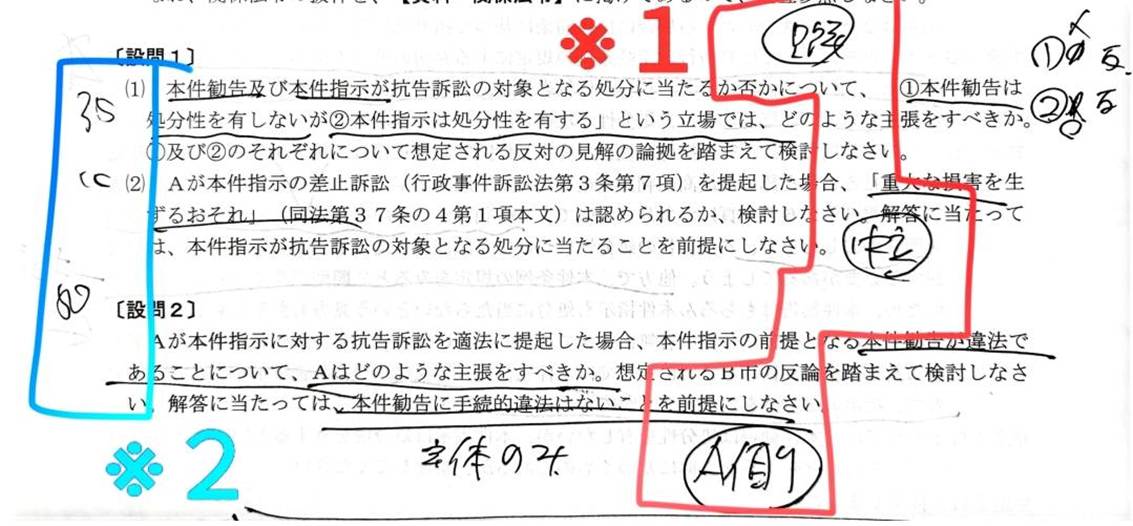 ※1
〔設問1〕
⑴ 本件勧告及び本件指示が抗告訴訟の対象となる処分に当たるか否かについて、「①本件勧告は
処分性を有しないが②本件指示は処分性を有する」という立場では、どのような主張をすべきか。
①及び②のそれぞれについて想定される反対の見解の論拠を踏まえて検討しなさい。
⑵ Aが本件指示の差止訴訟(行政事件訴訟法第3条第7項)を提起した場合、「重大な損害を生
ずるおそれ」(同法第37条の4第1項本文)は認められるか、検討しなさい。解答に当たって
は、本件指示が抗告訴訟の対象となる処分に当たることを前提にしなさい。
中立
〔設問2〕
Aが本件指示に対する抗告訴訟を適法に提起した場合、本件指示の前提となる本件勧告が違法で
あることについて、Aはどのような主張をすべきか。想定されるB市の反論を踏まえて検討しなさ
い。解答に当たっては、本件勧告に手続的違法はないことを前提にしなさい。
※2
A側
35
60